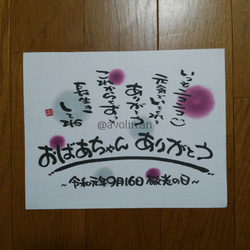 いつもニコニコ(:)
元気でいてくれて
ありがとう
これからもずっと
長生き
してね
@avolin.an
おばあちゃん ありがとう
~令和元年9月16日 敬老の日~